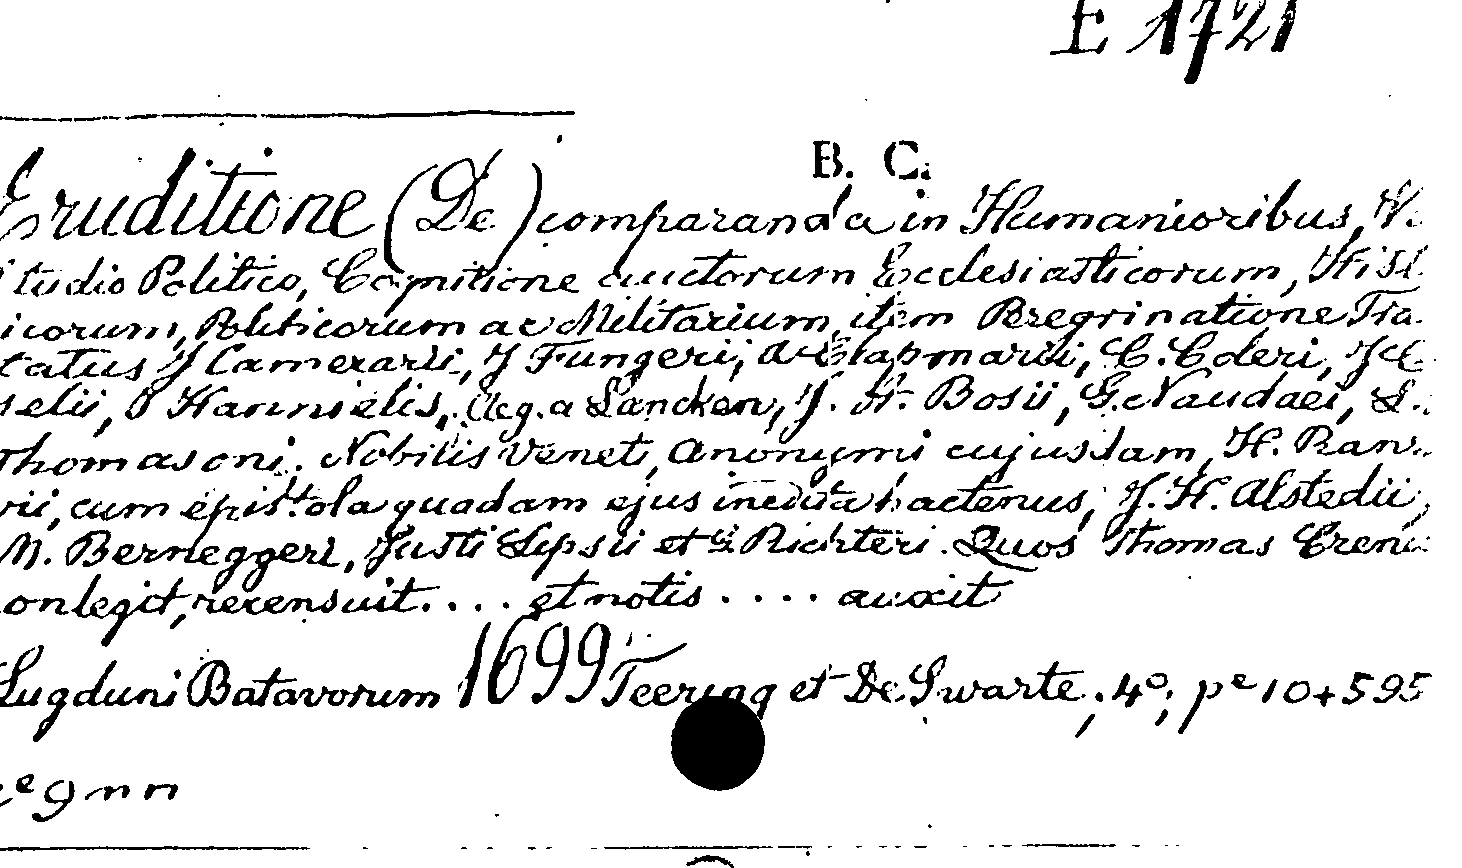 E 1721
B. C.
Eruditione (De) comparanda in Humanioribus, V.
Studio Politico, Cognitione auctorum Ecclesiasticorum, Hist
icorum, Politicorum ac Militarium, item Peregrinatione Tra
tatus J Camerarii, J Fungerii, A. Clapmarii, C. Coleri, J C
selii, D Hannielis, Aeg. a Lancken, J. H. Bosii, G. Naudaei, L.
Thomasoni. Nobilis Venet, Anonymi cujusdam, H. Ran
vii, cum epistola quadam ejus inedita hactenus, J. H. Alstedii,
M. Berneggeri, Justi Lipsii et Richteri. Quos Thomas Creni
onlegit, recensuit.... et notis .... auxit
Lugduni Batavorum 1699 Teering et De Swarte; 4º; pe 10+595
e 9 nn